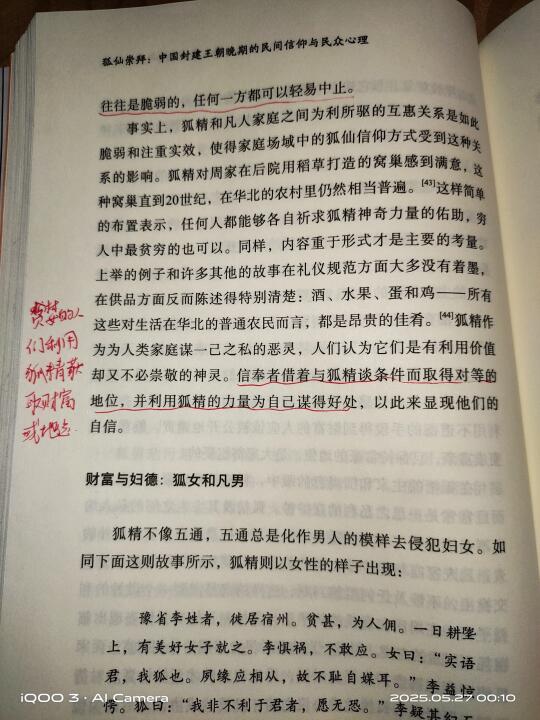 狐仙崇拜：中国封建王朝晚期的民间信仰与民众心理
往往是脆弱的，任何一方都可以轻易中止。
事实上，狐精和凡人家庭之间为利所驱的互惠关系是如此
脆弱和注重实效，使得家庭场域中的狐仙信仰方式受到这种关
系的影响。狐精对周家在后院用稻草打造的窝巢感到满意，这
种窝巢直到20世纪，在华北的农村里仍然相当普遍。[43]这样简单
的布置表示，任何人都能够各自祈求狐精神奇力量的佑助，穷
人中最贫穷的也可以。同样，内容重于形式才是主要的考量。
上举的例子和许多其他的故事在礼仪规范方面大多没有着墨，
在供品方面反而陈述得特别清楚：酒、水果、蛋和鸡——所有
这些对生活在华北的普通农民而言，都是昂贵的佳肴。[44]狐精作
为为人类家庭谋一己之私的恶灵，人们认为它们是有利用价值
却又不必崇敬的神灵。信奉者借着与狐精谈条件而取得对等的
地位，并利用狐精的力量为自己谋得好处，以此来显现他们的
自信。
的人
们利用
狐精获
取财富
或地志
财富与妇德：狐女和凡男
狐精不像五通，五通总是化作男人的模样去侵犯妇女。如
同下面这则故事所示，狐精则以女性的样子出现：
豫省李姓者，徙居宿州。贫甚，为人佣。一日耕墅
上，有美好女子就之。李惧祸，不敢应。女曰：“实语
君，我狐也。夙缘应相从，故不耻自媒耳。”李益惊
愕。狐曰：“我非不利于君者，愿无恐。”李疑其纪
iQOO 3 · AI Camera
2025.05.27 00:10